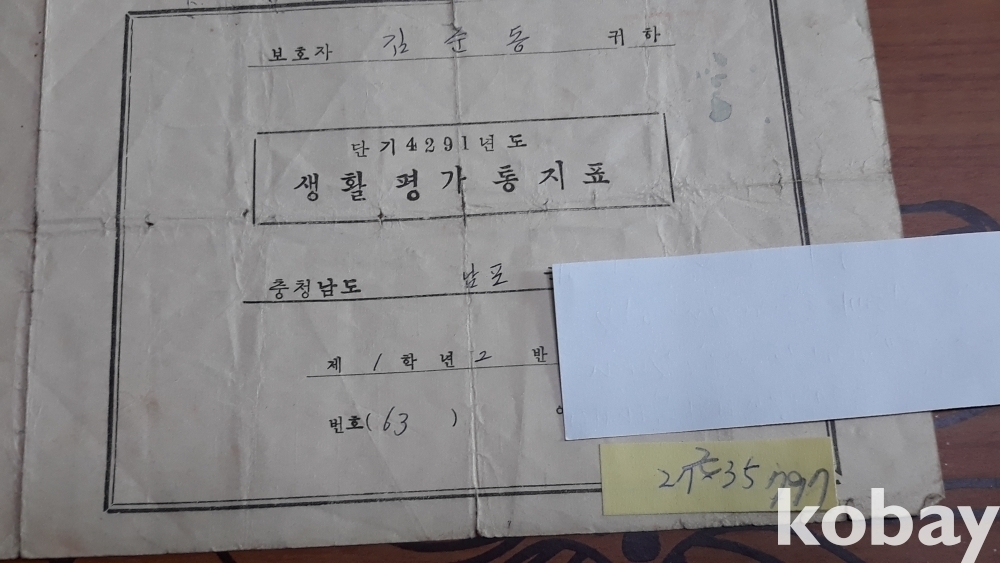 보호자 김준동 귀하
단기4291년도
생활평가통지표
충청남도 남포
제 1 학년 2 반
번호( 63 )
kobay